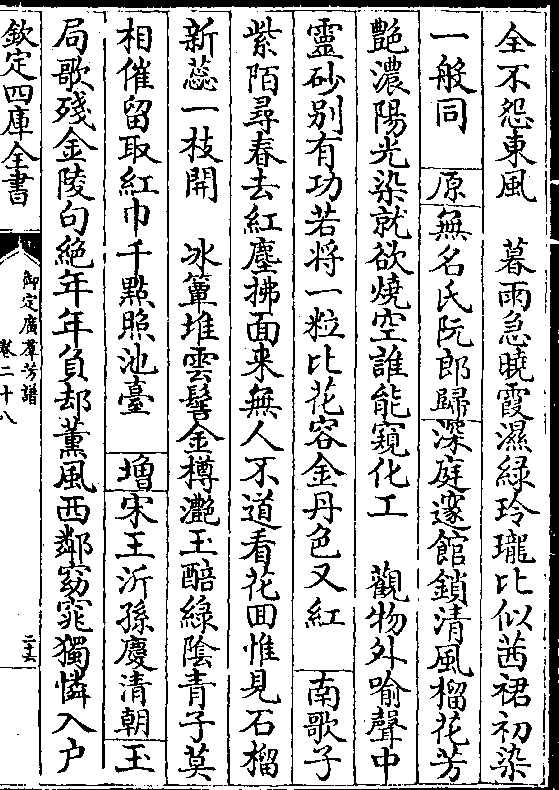 全不怨東風　暮雨急曉霞濕緑玲瓏比似茜裙初染
一般同　原無名氏阮郎歸深庭邃館鎖清風榴花芳
艶濃陽光染就欲燒空誰能窺化工　觀物外喻聲中
靈砂别有功若將一粒比花容金丹色又紅　南歌子
紫陌尋春去紅塵拂面来無人不道看花囬惟見石榴
新蕊一枝開　冰簟堆雲髻金樽灧玉醅緑陰青子莫
相催留取紅巾千點照池臺　増宋王沂孫慶清朝玉
局歌殘金陵句絶年年負却薰風西鄰窈窕獨憐入户
欽定四庫全書
御定廣羣芳譜
卷二十八
二十六